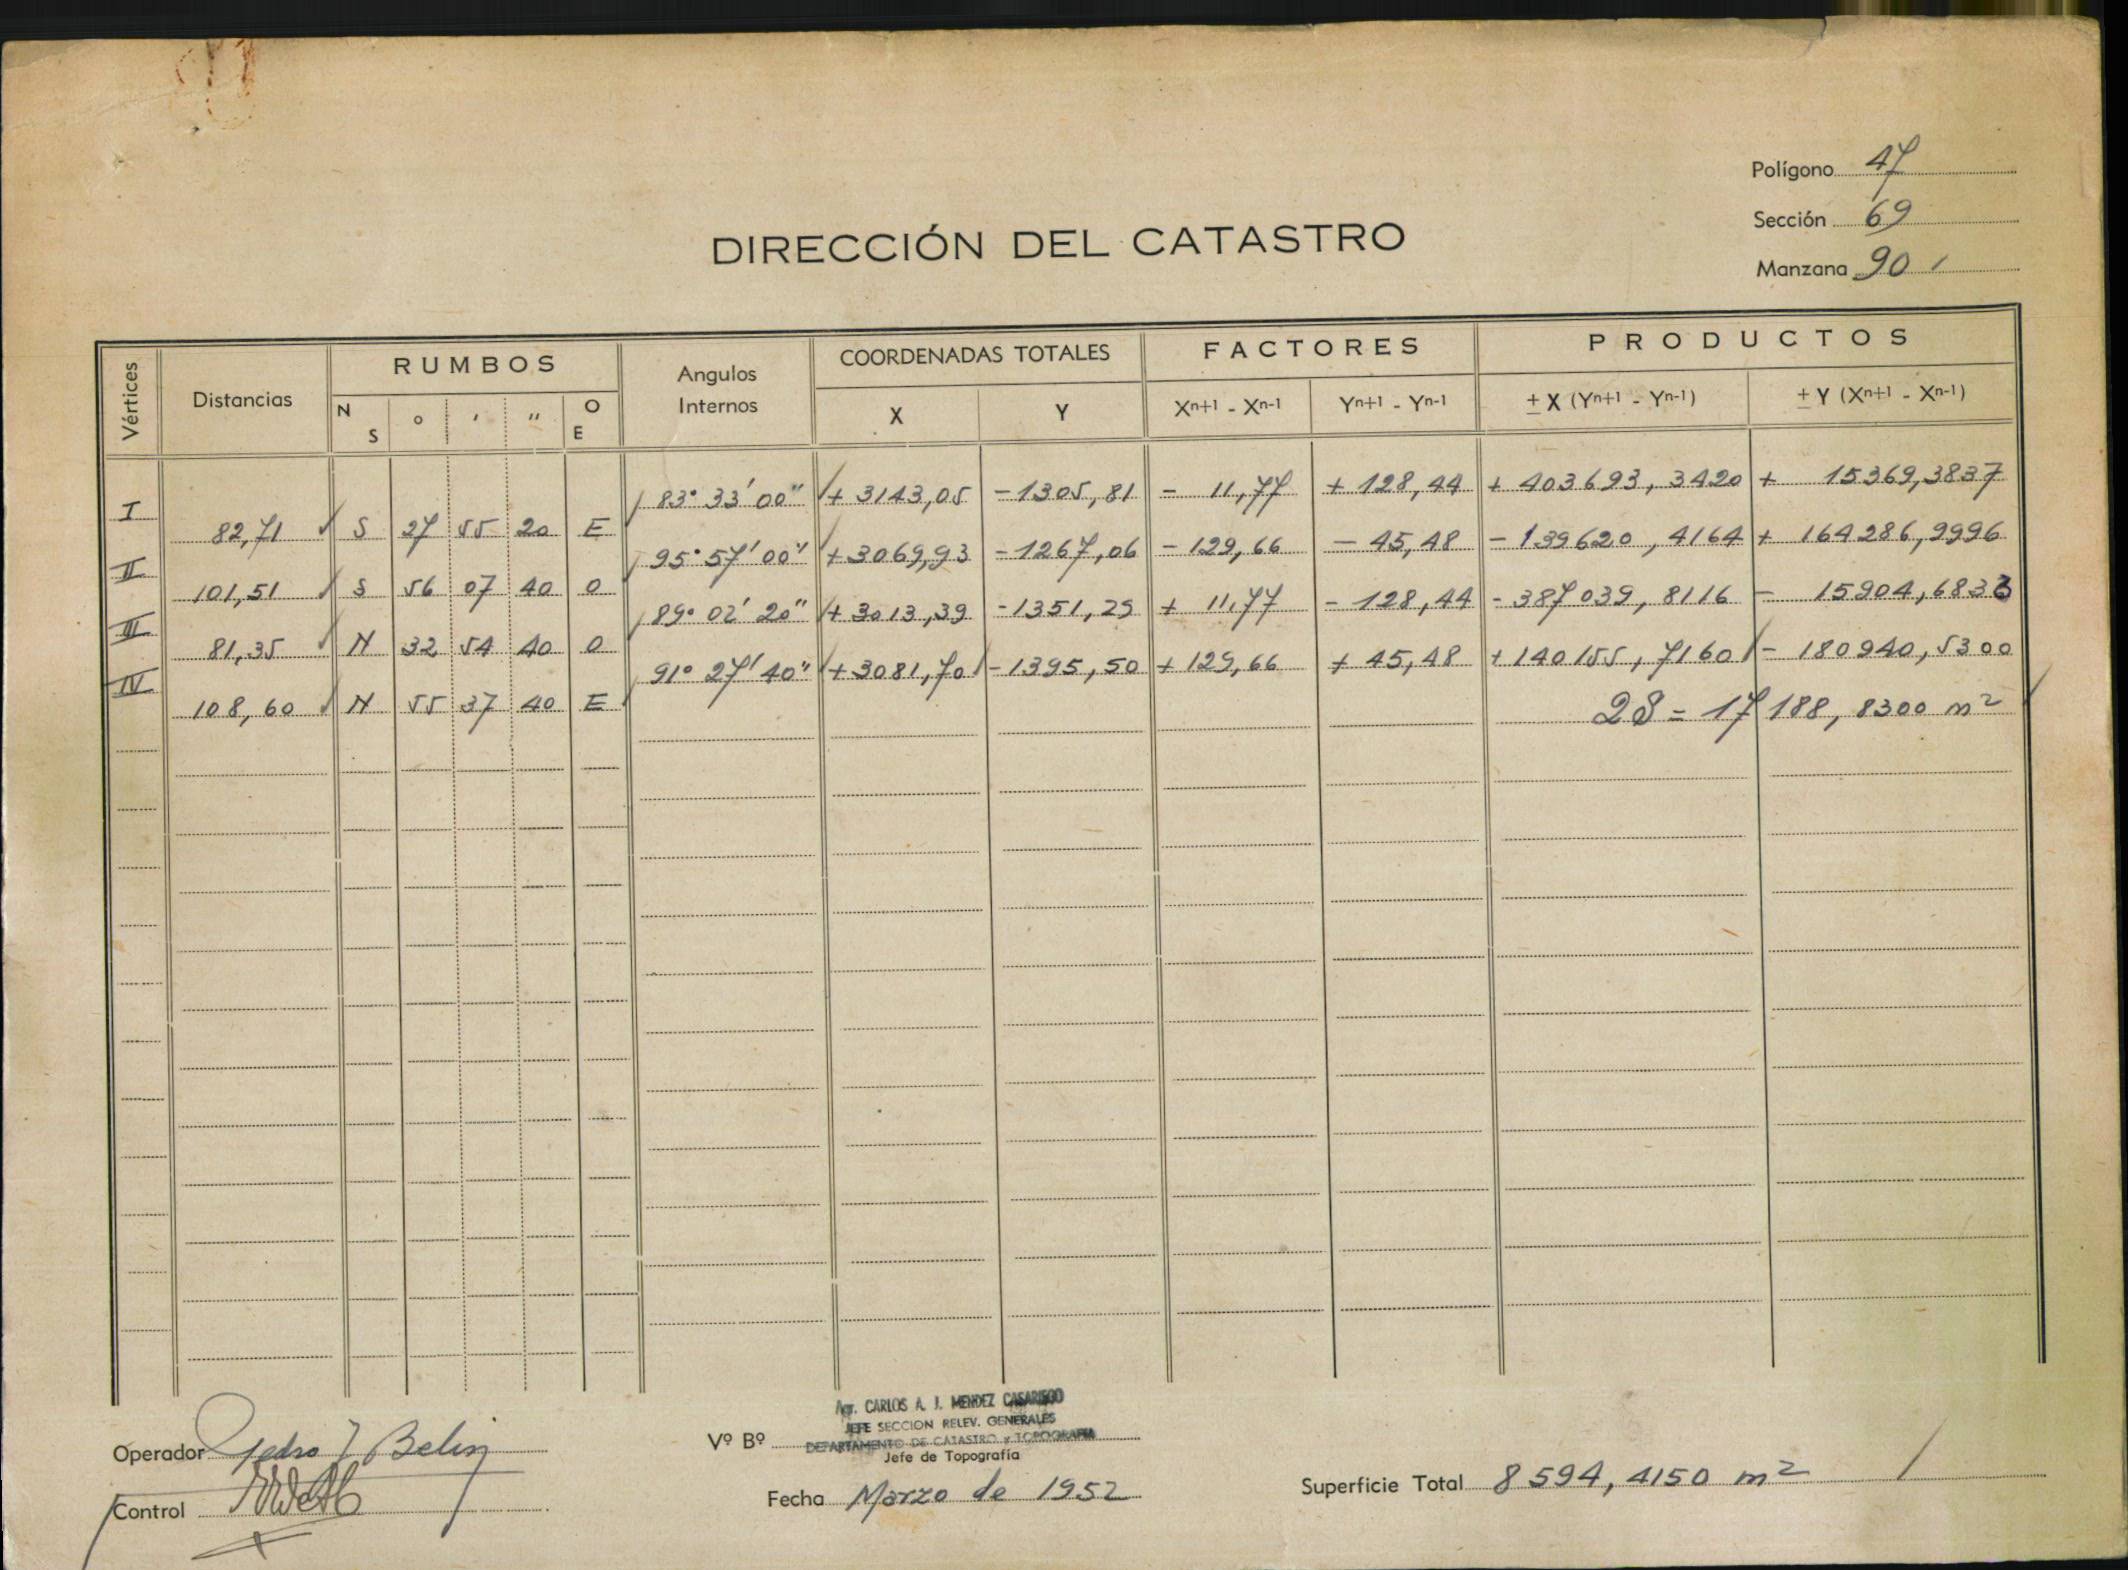 Polígono 47
Sección 69
Manzana 90
DIRECCIÓN DEL CATASTRO
Vértices Distancias RUMBOS Angulos Internos COORDENADAS TOTALES FACTORES PRODUCTOS
N S ° ' '' O E X Y Xn+1 - Xn-1 Yn+1 - Yn-1 ± X (Yn+1 - Yn-1) ± Y (Xn+1 - Xn-1)
I 83° 33' 00" + 3143,05 - 1305,81 - 11,77 + 128,44 + 403693,3420 + 15369,3837
82,71 S 27 55 20 E
II 95° 57' 00" + 3069,93 - 1267,06 - 129,66 - 45,48 - 139620,4164 + 164286,9996
101,51 S 56 07 40 O
III 89° 02' 20" + 3013,39 - 1351,29 + 11,77 - 128,44 - 387039,8116 - 15904,6833
81,35 N 32 54 40 O
IV 91° 27' 40" + 3081,70 - 1395,50 + 129,66 + 45,48 + 140155,7160 - 180940,5300
108,60 N 55 37 40 E
2S = 17188,8300 m2
Agr. CARLOS A. J. MENDEZ CASARIEGO
JEFE SECCION RELEV. GENERALES
DEPARTAMENTO DE CATASTRO y TOPOGRAFIA
Operador Pedro J Belin Vº Bº Jefe de Topografía
Control Fecha Marzo de 1952 Superficie Total 8594,4150 m2